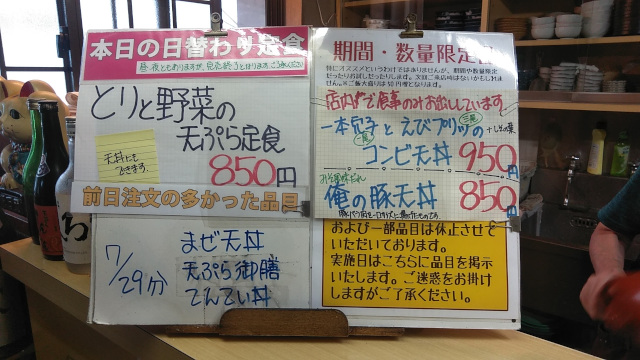 本日の日替わり定食
昼・夜ともありますが、完売終了となります。ご了承ください
とりと野菜の
天ぷら定食
天丼にも
できます。
850円
前日注文の多かった品目
7/29分
まぜ天丼
天ぷら御膳
てんてい丼
期間・数量限定
特にオススメというわけではありませんが、期間や数量限定
店内やで食事のみお出ししています
一本穴子とえびプリッの
コンビ天丼 950円
俺の豚天丼 850円
および一部品目は休止させて
いただいております。
実施日はこちらに品目を掲示
いたします。ご迷惑をお掛け
しますがご了承ください。